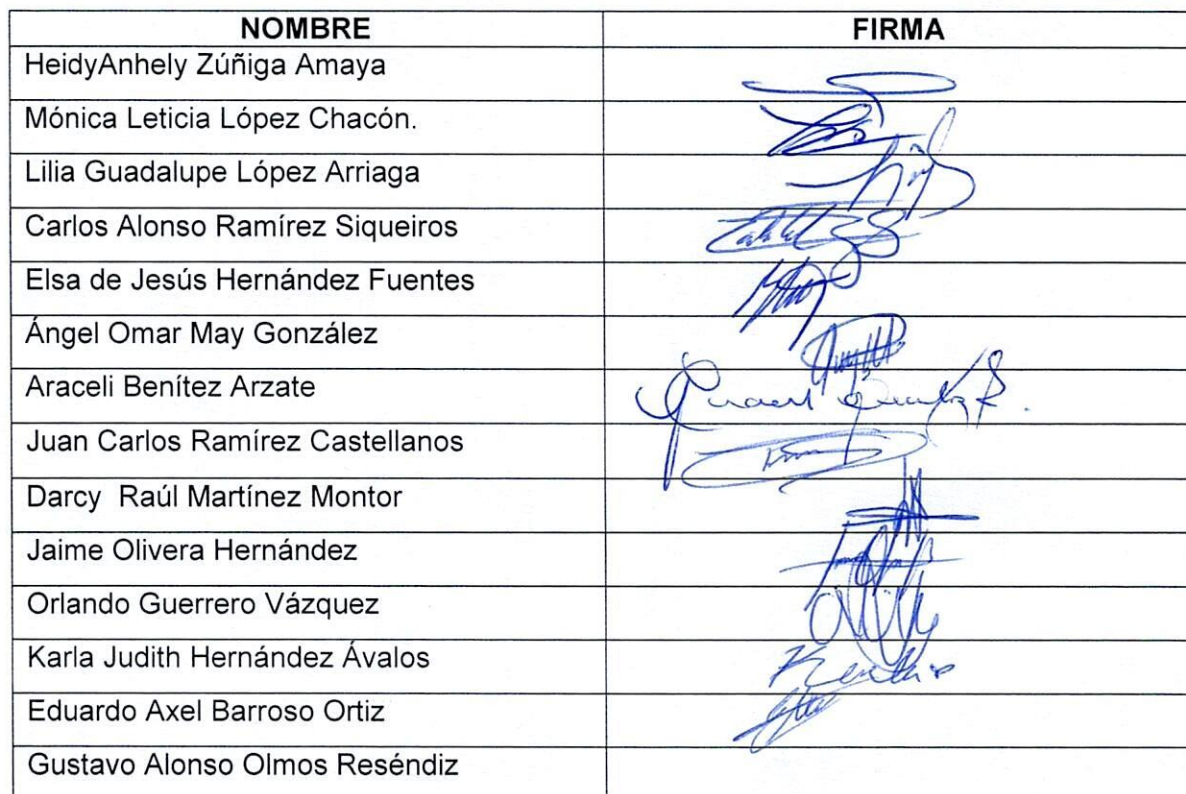 NOMBRE FIRMA
HeidyAnhely Zúñiga Amaya
Mónica Leticia López Chacón.
Lilia Guadalupe López Arriaga
Carlos Alonso Ramírez Siqueiros
Elsa de Jesús Hernández Fuentes
Ángel Omar May González
Araceli Benítez Arzate
Juan Carlos Ramírez Castellanos
Darcy  Raúl Martínez Montor
Jaime Olivera Hernández
Orlando Guerrero Vázquez
Karla Judith Hernández Ávalos
Eduardo Axel Barroso Ortiz
Gustavo Alonso Olmos Reséndiz